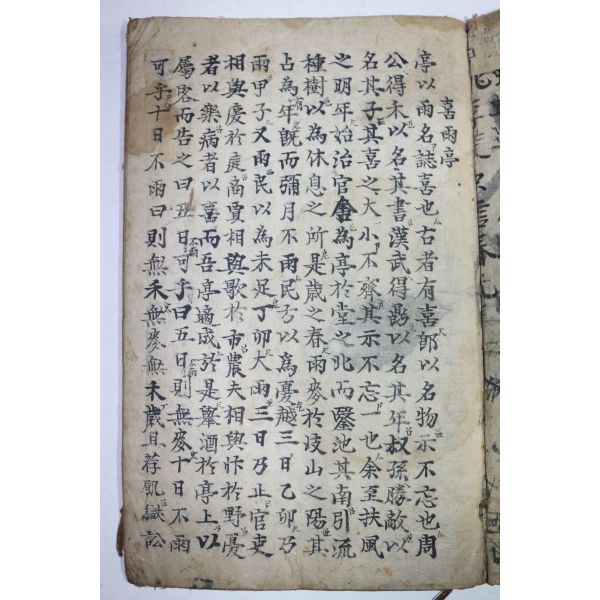 喜雨亭
亭以雨名誌喜也古者有喜卽以名物示不忘也周
公得禾以名其書漢武得鼎以名其年叔孫勝敵以
名其子其喜之大小不齊其示不忘一也余至扶風
之明年始治官舍為亭於堂之北而鑿池其南引流
種樹以為休息之所是歲之春雨麥於歧山之陽其
占為有年旣而彌月不雨民方以為憂越三日乙卯乃
雨甲子又雨民以為未足丁卯大雨三日乃止官吏
相與慶於庭商賈相與歌於市農夫相與忭於野憂
者以樂病者以喜而吾亭適成於是擧酒於亭上以
屬客而告之曰五日不雨可乎曰五日不雨則無麥十日不雨
可乎十日不雨曰則無禾無麥無禾歲且荐飢獄訟